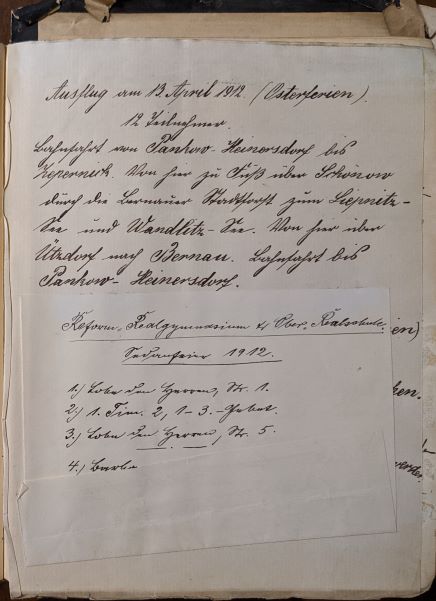 Ausflug am 13. April 1912. (Osterferien).
12 Teilnehmer.
Bahnfahrt von Pankow-Heinersdorf bis
Zepernick. Von hier zu Fuß über Schönow
durch die Bernauer Stadtforst zum Liepnitz-
See und Wandlitz-See. Von hier über
Ützdorf nach Bernau. Bahnfahrt bis
Pankow-Heinersdorf.
Reform-Realgymnasium & Ober-Realschule.
Sedanfeier 1912.
1.) Lobe den Herren, Str. 1.
2.) 1. Tim. 2, 1-3. - Gebet.
3.) Lobe den Herren, Str. 5.
4.)